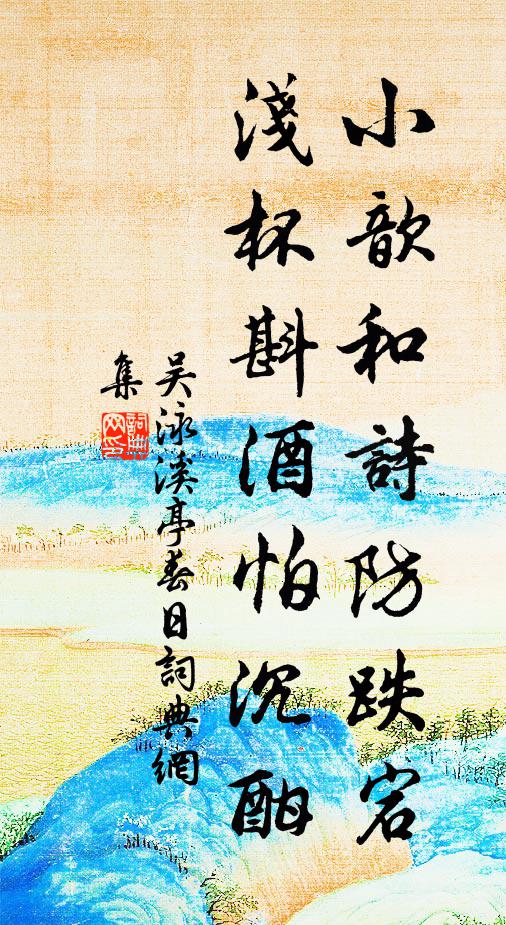 小歆和詩防跌宕
淺杯斟酒怕沉酣
吴泳溪亭春日詞典網
集
詞典網印